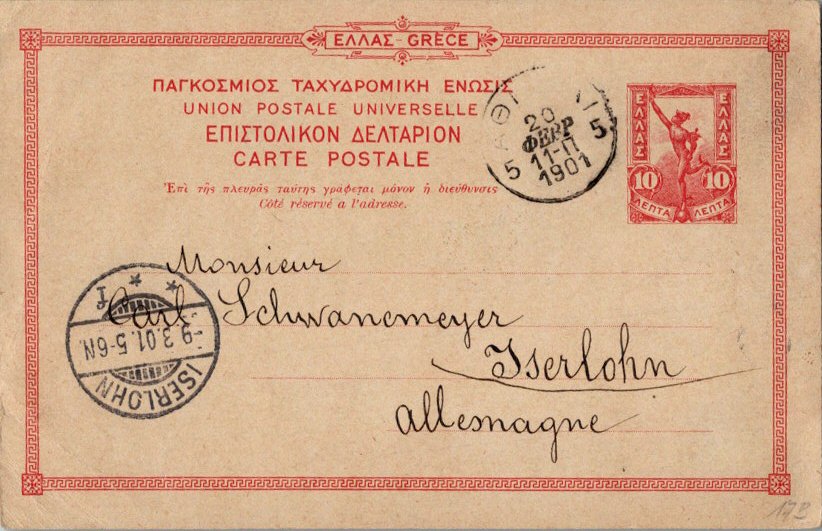 ΕΛΛΑΣ-GRÈCE
ΠΑΓΚΟΣΜΙΟΣ ΤΑΧΥΔΡΟΜΙΚΗ ΕΝΩΣΙΣ
UNION POSTALE UNIVERSELLE
ΕΠΙΣΤΟΛΙΚΟΝ ΔΕΛΤΑΡΙΟΝ
CARTE POSTALE
Ἐπὶ τῆς πλευρᾶς ταύτης γράφεται μόνον ἡ διεύθυνσις
Côté réservé a l'adresse.
20
ΦΕΒΡ
11-Π
1901
5 5
ΕΛΛΑΣ ΕΛΛΑΣ
10 10
ΛΕΠΤΑ ΛΕΠΤΑ
Monsieur
Carl Schwanemeyer
Iserlohn
Allemagne
* * I
-9.3.01.5-6N.
ISERLOHN
172